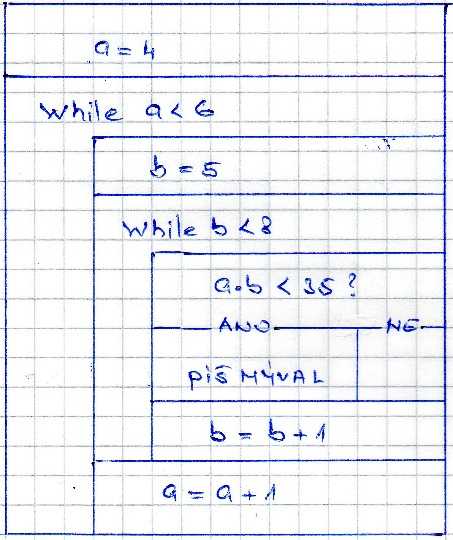 a = 4
While a < 6
b = 5
While b < 8
a·b < 35 ?
ANO NE
PIŠ MÝVAL
b = b + 1
a = a + 1